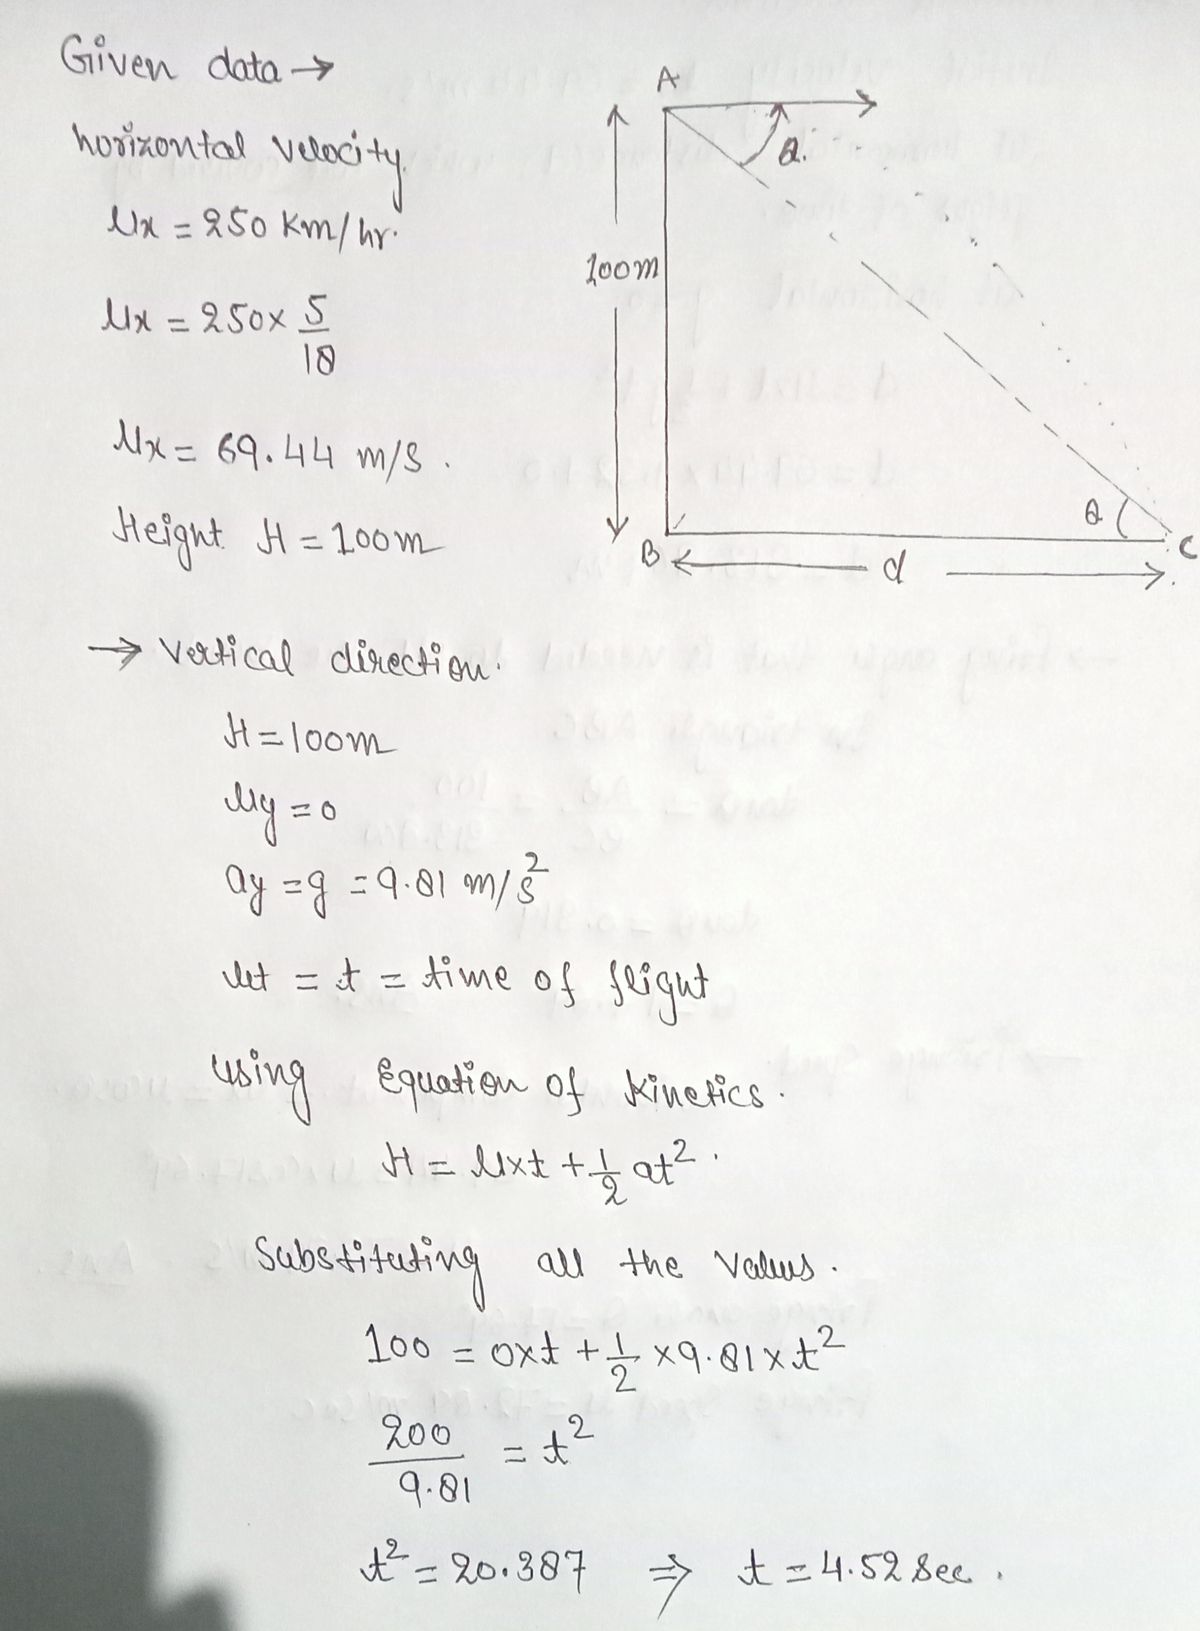 Given data →
horizontal velocity.
Ux = 250 Km/hr.
Ux = 250 × 5/18
Ux = 69.44 m/s.
Height H = 100m
A
θ.
100m
θ
B
C
d
→ Vertical direction.
H = 100m
Uy = 0
ay = g = 9.81 m/s²
let = t = time of flight
Using Equation of Kinetics.
H = Uxt + 1/2 at².
Substituting all the Values.
100 = 0xt + 1/2 × 9.81 × t²
200/9.81 = t²
t² = 20.387 ⇒ t = 4.52 Sec.